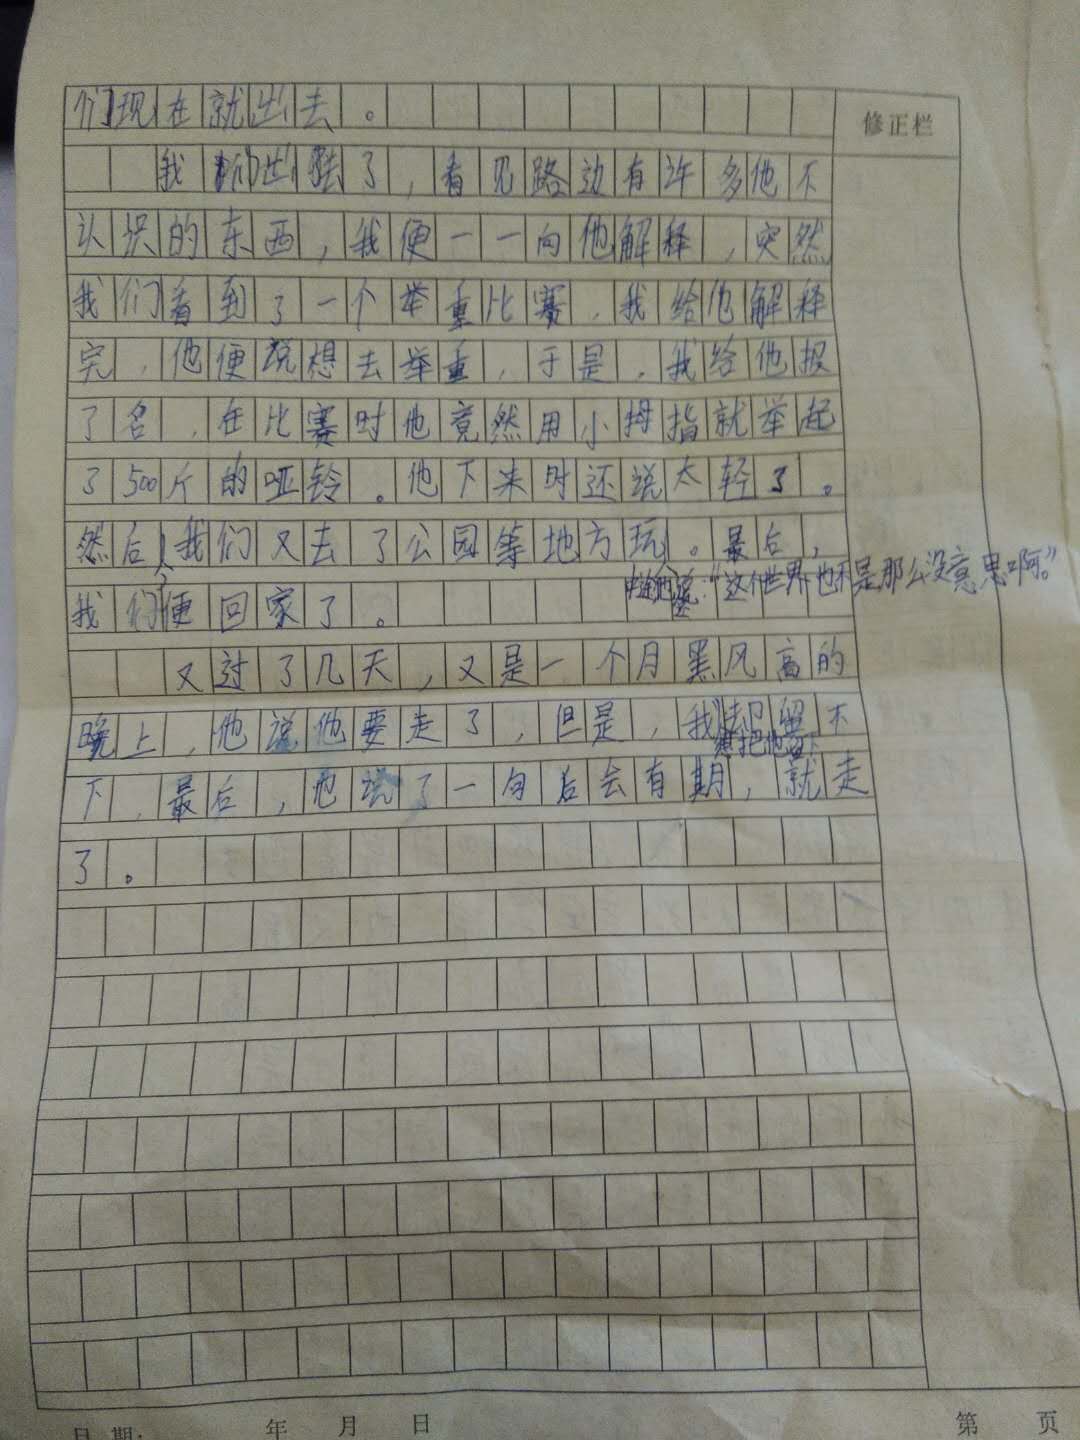 们现在就出去。
修正栏
我们出去了，看见路边有许多他不
认识的东西，我便一一向他解释，突然
我们看到了一个举重比赛，我给他解释
完，他便说想去举重，于是，我给他报
了名，在比赛时他竟然用小拇指就举起
了500斤的哑铃。他下来时还说太轻了。
然后，我们又去了公园等地方玩。最后，
他说：“这个世界也不是那么没意思啊。”
我们便回家了。
又过了几天，又是一个月黑风高的
晚上，他说他要走了，但是，我留不
想把他留下
下，最后，他说了一句后会有期，就走
了。
日期： 年 月 日 第 页